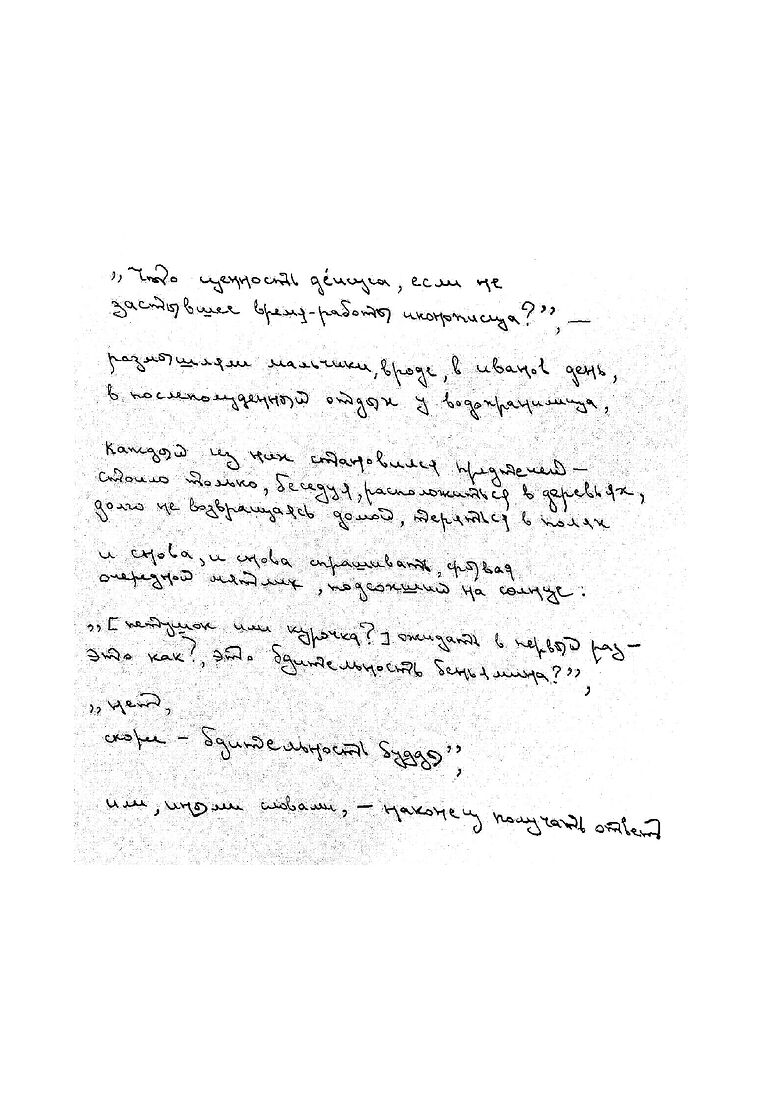 „Что ценность дéисуса, если не
застывшее время-работы иконописца?”, —
размышляли мальчики, вроде, в иванов день,
в послеполуденный отдых у водохранилища,
каждый из них становился предтечей —
стоило только, беседуя, расположиться в деревьях,
долго не возвращаясь домой, теряться в полях
и снова, и снова спрашивать, срывая
очередной мятлик, подсохший на солнце:
„[петушок или курочка?] ожидать в первый раз —
это как?, это бдительность беньямина?”,
„нет,
скорее — бдительность будды”,
или, иными словами, — наконец получать ответ